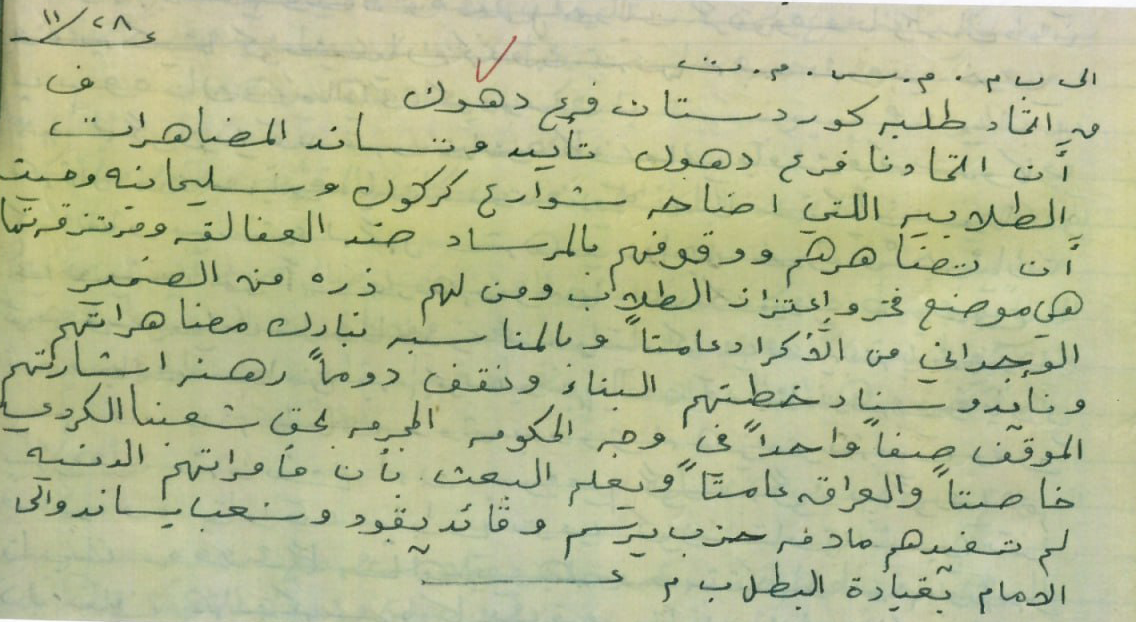 ١١/٢٨
الى ب م . م . س . م . ت
من اتحاد طلبه كوردستان فرع دهوك ف
أن اتحادنا فرع دهوك تأييد وتساند المضاهرات
الطلابيه اللتي اضناحه شوارع كركوك وسليمانيه وحيث
أن تضاهرهم ووقوفهم بالمرساد ضد العفالقه ومرتزقتها
هي موضع فخر وإعتزاز الطلاب ومن لهم ذره من الضمير
الوجداني من الأكراد عامتاً وبالمناسبه نبارك مضاهراتهم
ونايدو سناد خطتهم البناء ونقف دوماً رهنـ اشارتهم
الموقف صفاً واحداً في وجه الحكومه المجرمه بحق شعبنا الكردي
خاصتاً والعراق عامتاً ويعلم البعث بأن مأمراتهم الدنيه
لم تفيدهم مادمه حزب يرسم وقائد يقود وشعب يساند والى
الامام بقيادة البطل ب م